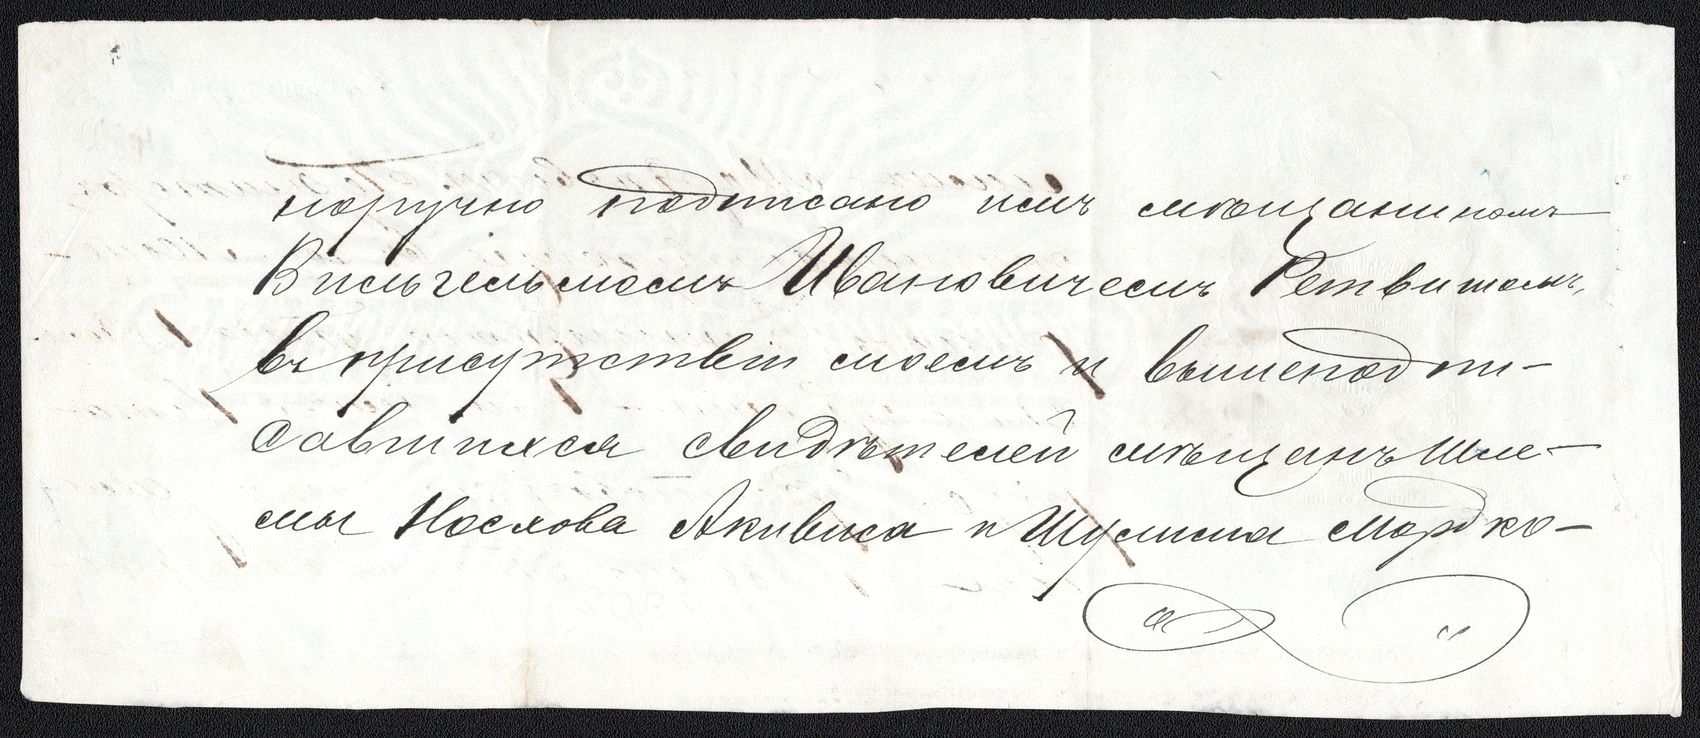 поручно подписано имъ мѣщаниномъ
Вильгельмомъ Ивановичемъ Ретвитомъ,
въ присутствіи моемъ и вышеподпи-
савшихся свидѣтелей мѣщанъ Шле-
мы Носхова Акивиса и Шулима Мордко-